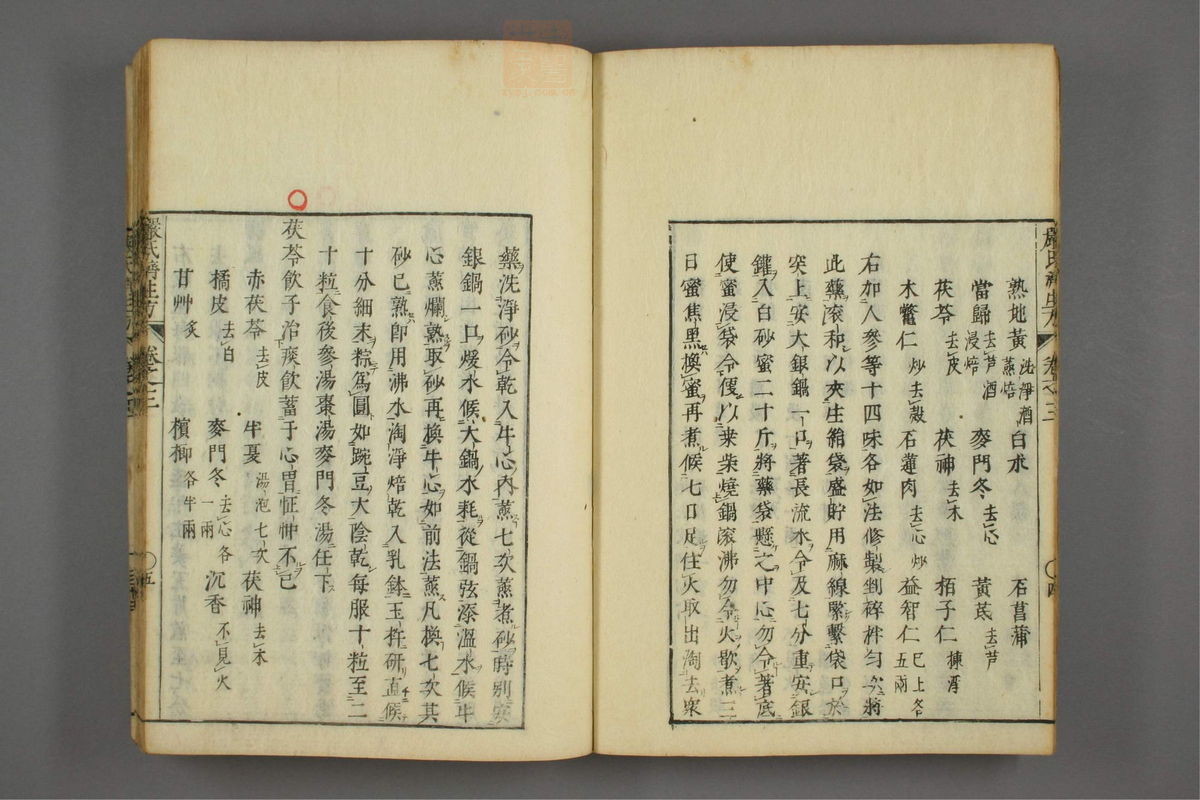 嚴氏濟生方 卷之三 四
熟地黃洗淨酒蒸焙 白朮 石菖蒲
當歸去芦酒浸焙 麥門冬去心 黃芪去芦
茯苓去皮 茯神去木 栢子仁揀淨
木鱉仁炒去殼 石蓮肉去心炒 益智仁已上各五兩
右加人參等十四味各如法修製剉碎拌勻次將
此藥滾和以夾生絹袋盛貯用麻線緊繫袋口於
突上安大銀鍋一口著長流水令及七分重安銀
鑵入白砂蜜二十斤將藥袋懸之中心勿令著底
使蜜浸袋令偃以桑柴燒鍋滾沸勿令火歇煮三
日蜜焦黑換蜜再煮候七日足住火取出淘去衆
藥洗淨砂令乾入牛心內蒸七次蒸煮砂時別安
銀鍋一口煖水候大鍋水耗從鍋弦添溫水候牛
心蒸爛熟取砂再換牛心如前法蒸凡換七次其
砂已熟即用沸水淘淨焙乾入乳鉢玉杵研直候
十分細末粽爲圓如豌豆大陰乾每服十粒至二
十粒食後參湯棗湯麥門冬湯任下
茯苓飲子治痰飲蓄于心胃怔忡不已
赤茯苓去皮 半夏湯泡七次 茯神去木
橘皮去白 麥門冬去心各一兩 沉香不見火
甘艸炙 檳榔各半兩
嚴氏濟生方 卷之三 五